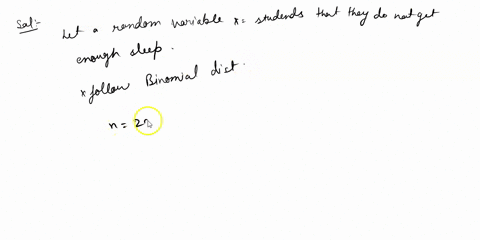 Sol:- Let a random variable x = students that they do not get
enough sleep.
x follow Binomial dist.
n = 22